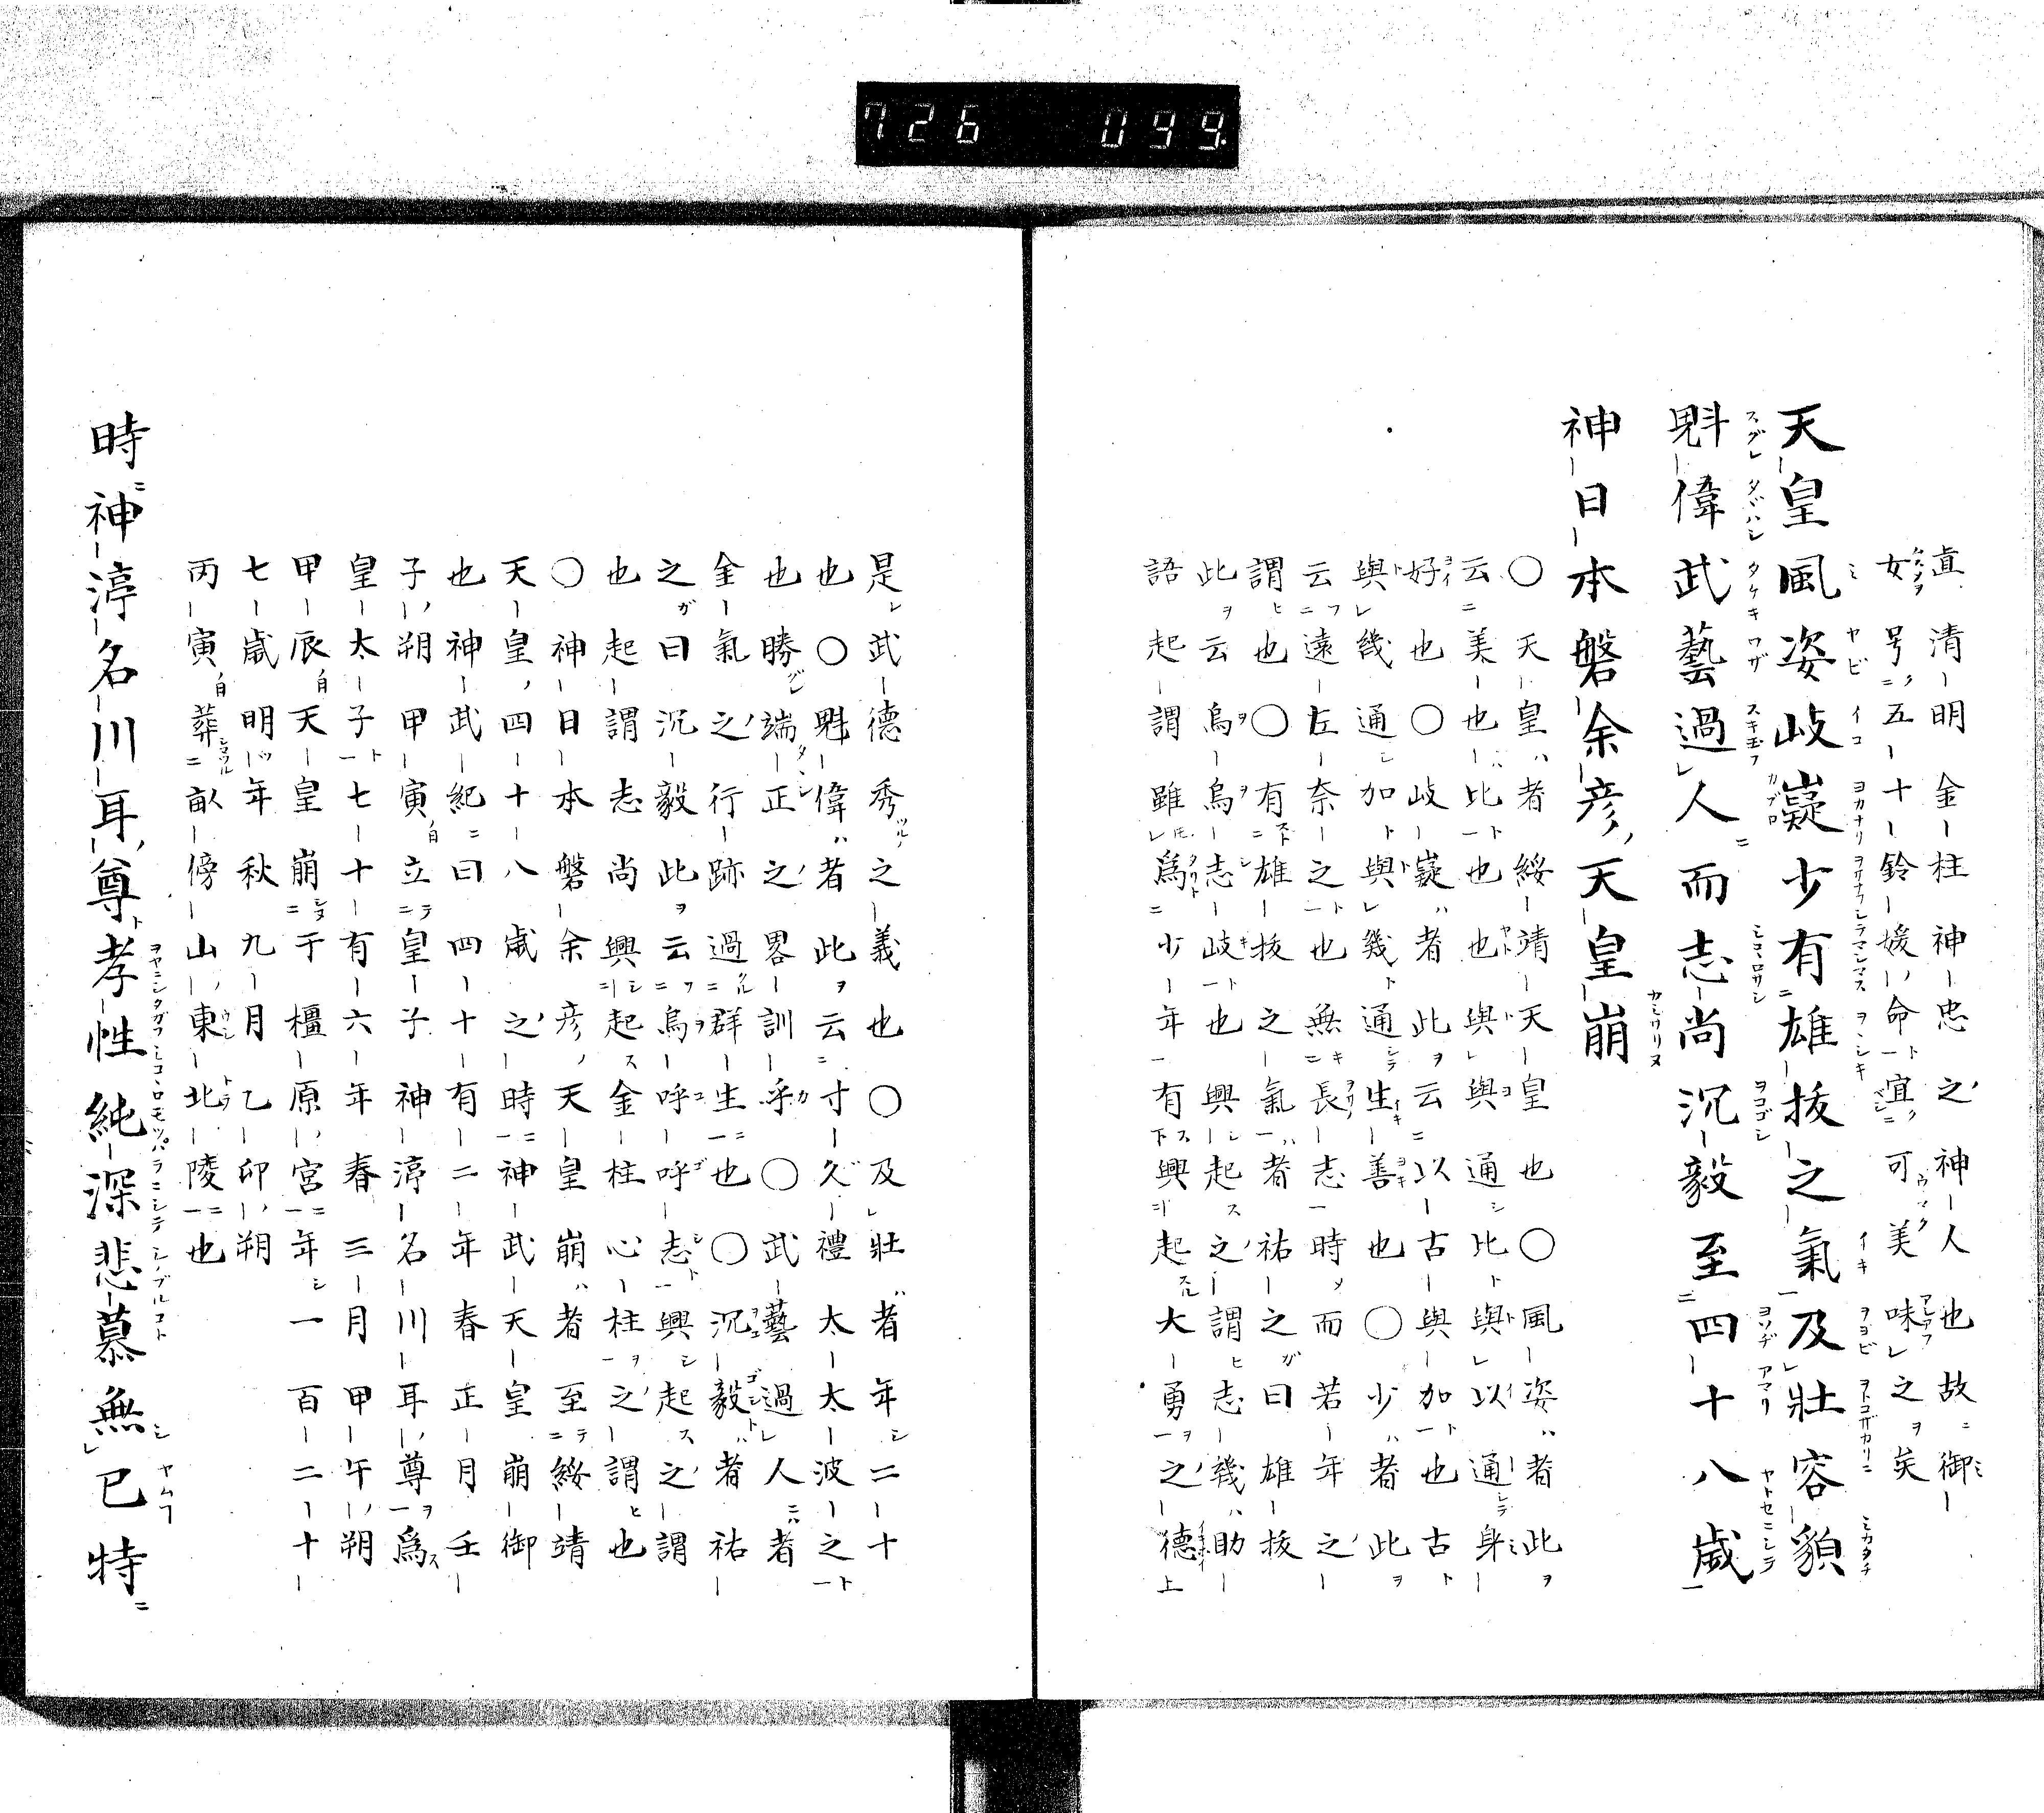 726 099.
直清明金柱神忠之神人也故御
女号五十鈴媛命宜可美味之矣
天皇風姿岐嶷少有雄拔之氣及壯容貌
魁偉武藝過人而志尚沉毅至四十八歲
神日本磐余彦天皇崩
〇天皇者綏靖天皇也〇風姿者此
云美也比也也與與通比與以通身
好也〇岐嶷者此云以古與加也古
與幾通加與幾通生善也〇少者此
云遠左奈之也無長志時而若年之
謂也〇有雄拔之氣者祐之曰雄拔
此云烏烏志岐也興起之謂志幾助
語起謂雖爲少年有興起大勇之德
是武德秀之義也〇及壯者年二十
也〇魁偉者此云寸久禮太太波之
也勝端正之畧訓乎〇武藝過人者
金氣之行跡過群生也〇沉毅者祐
之曰沉毅此云烏呼呼志興起之謂
也起謂志尚興起金柱心柱之謂也
〇神日本磐余彦天皇崩者至綏靖
天皇四十八歲之時神武天皇崩御
也神武紀曰四十有二年春正月壬
子朔甲寅立皇子神渟名川耳尊爲
皇太子七十有六年春三月甲午朔
甲辰天皇崩于橿原宮年一百二十
七歲明年秋九月乙卯朔
丙寅葬畝傍山東北陵也
時神渟名川耳尊孝性純深悲慕無已特